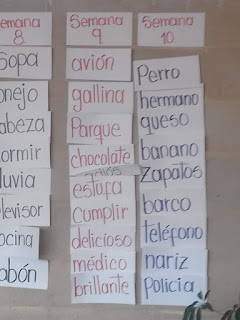 Semana
8.
Sopa
onejo
abeza
ormir
luvia
elevisor
ocina
abón
Semana
9.
avión
gallina
Parque
chocolate
estufa
cumplir
delicioso
médico
brillante
Semana
10.
Perro
hermano
queso
banano
zapatos
barco
teléfono
nariz
Policía